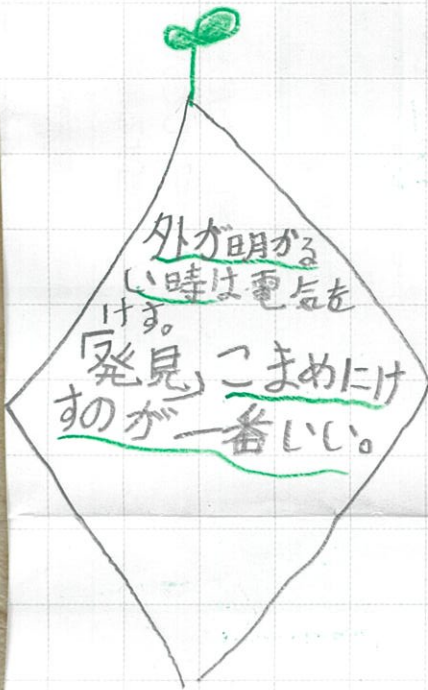 外が明かる
い時は電気を
けす。
「発見」こまめにけ
すのが一番いい。